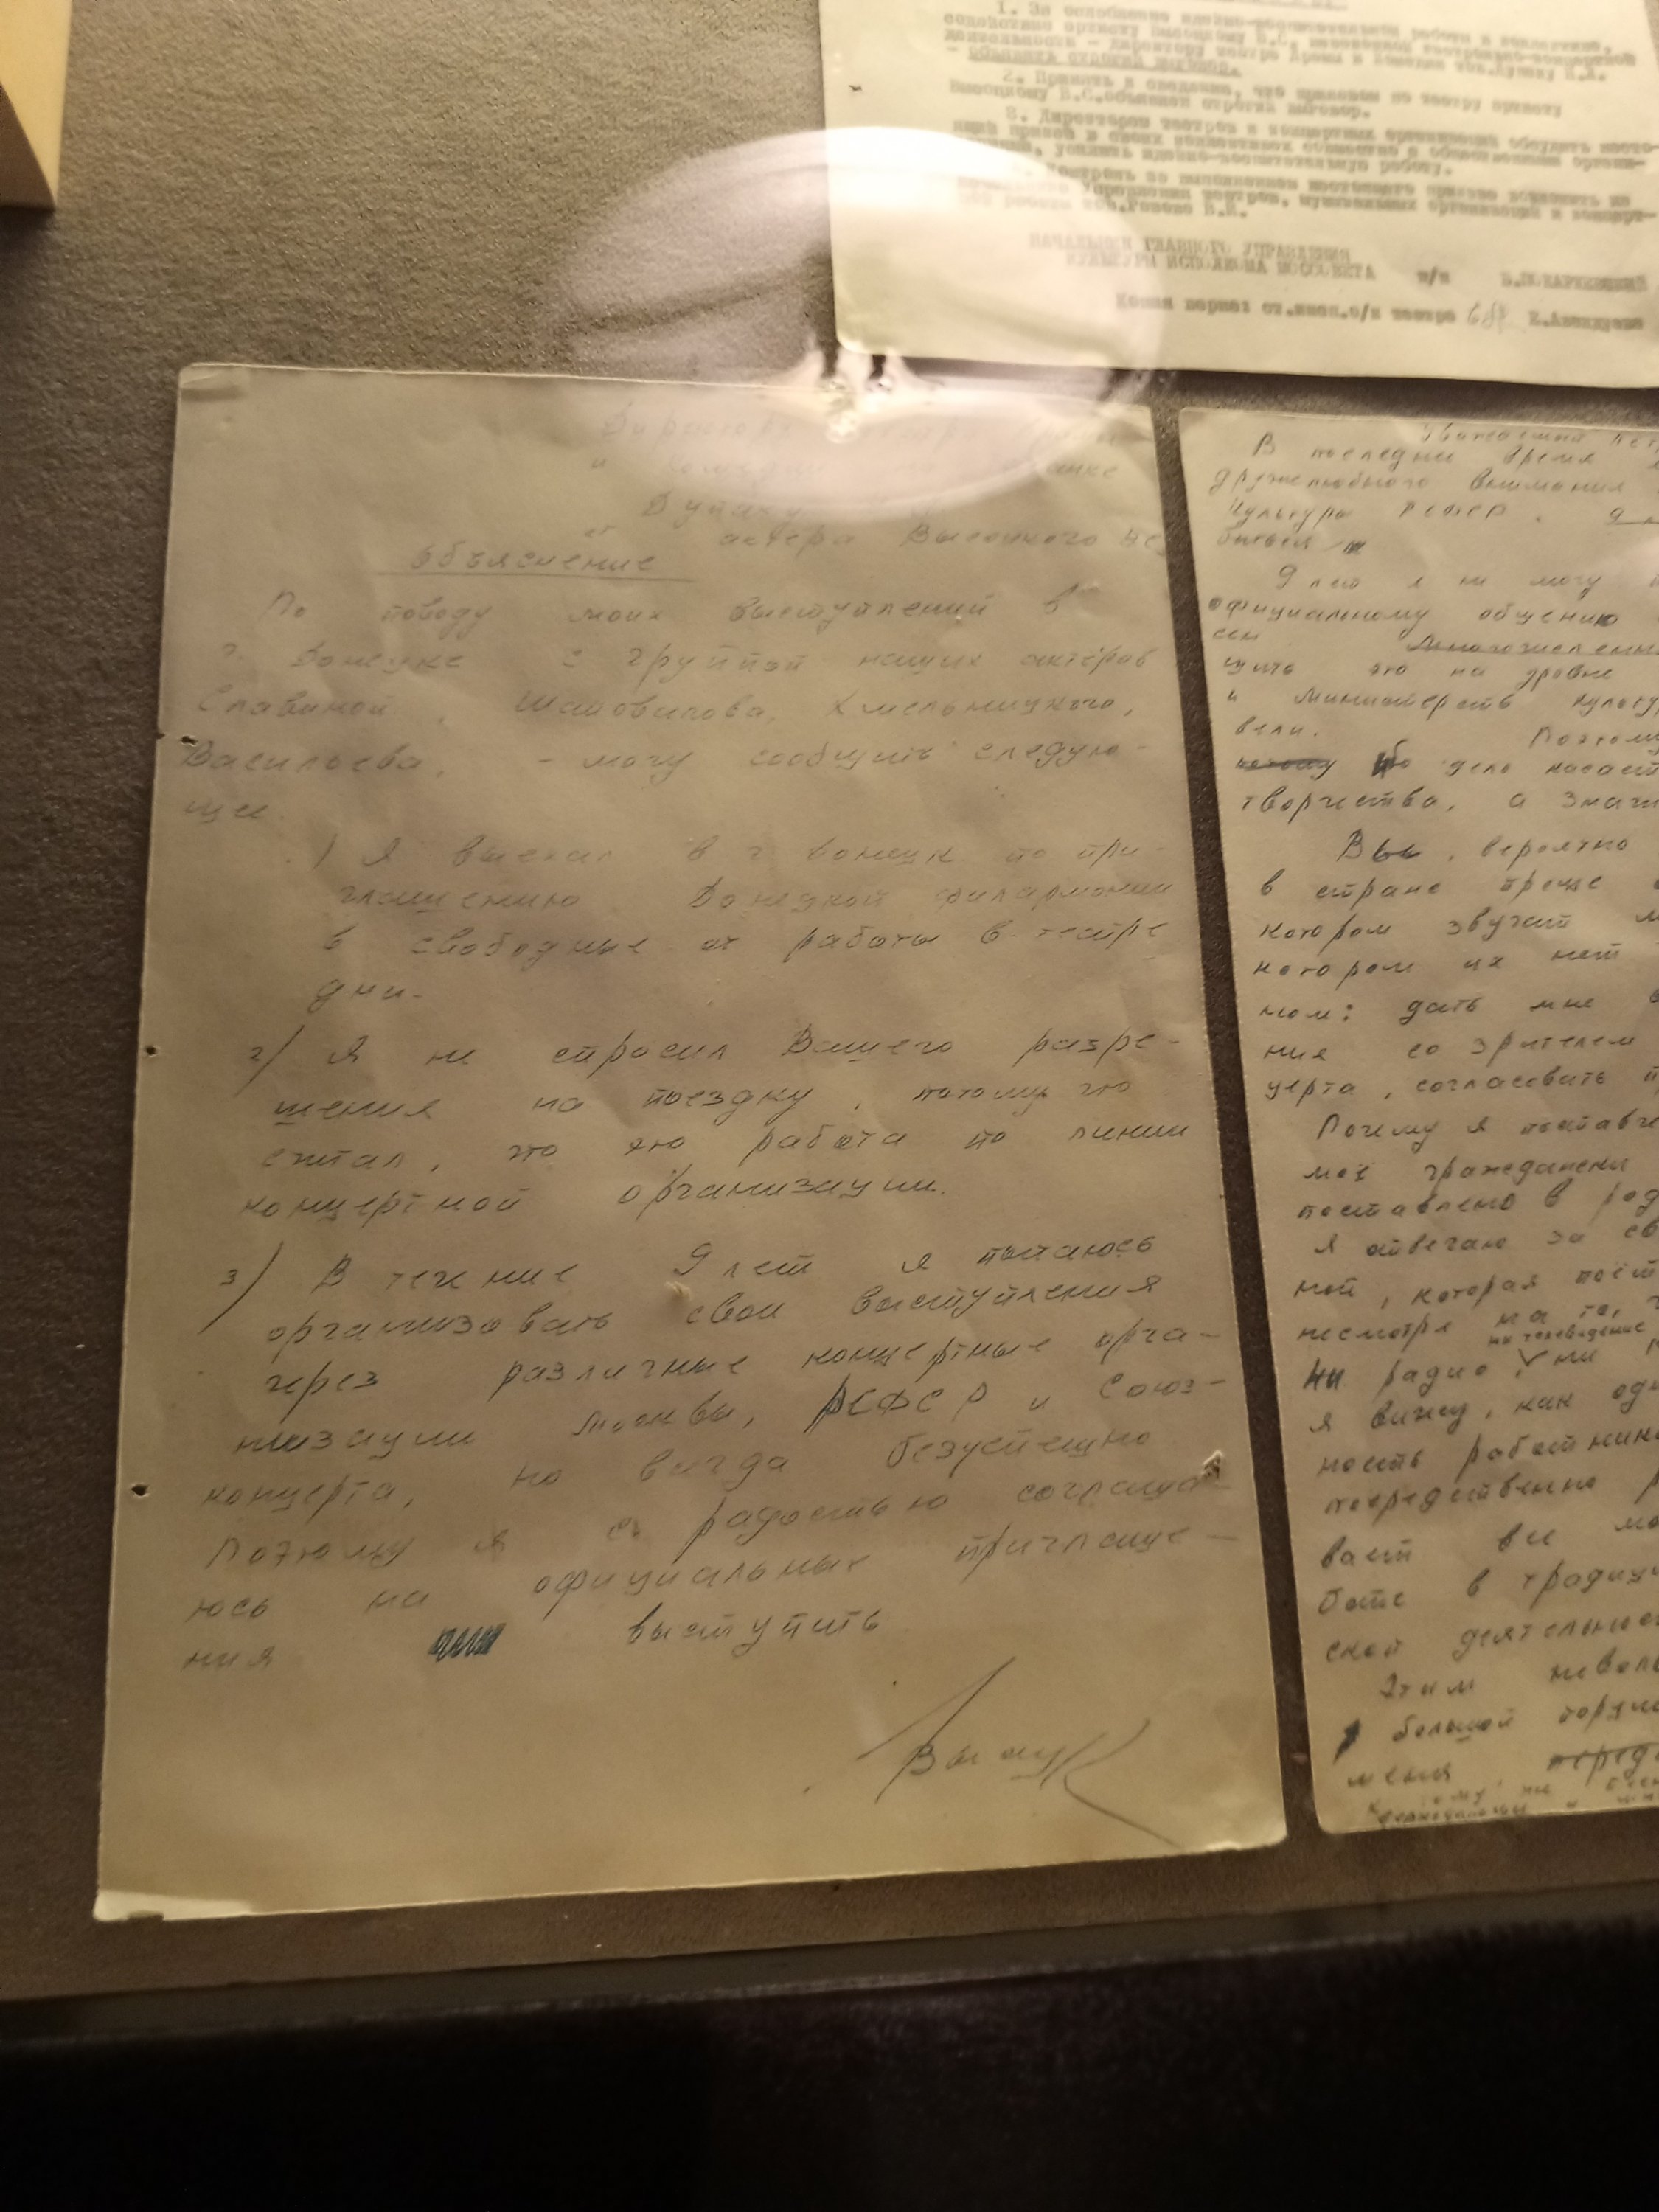 1. За ослабление идейно-воспитательной работы в коллективе,
содействие артисту Высоцкому В.С.
деятельности - директору театра драмы и комедии тов.Дупаку Н.Л.
- объявить строгий выговор.
2. Принять к сведению, что приказом по театру артисту
Высоцкому В.С. объявлен строгий выговор.
3. Директорам театров и концертных организаций обсудить
приказ в своих коллективах совместно с общественными
усилить идейно-воспитательную работу.
за выполнением настоящего приказа возложить на
театров, музыкальных организаций и
НАЧАЛЬНИК ГЛАВНОГО УПРАВЛЕНИЯ
КУЛЬТУРЫ ИСПОЛКОМА МОССОВЕТА п/п
Копия верна: театра
Директору театра
и
Дупаку
от актера Высоцкого
Объяснение
По поводу моих выступлений в
г. Донецке с группой наших актёров
Славиной, Шаповалова, Хмельницкого,
Васильева, - могу сообщить следую-
щее.
1) Я выехал в г. Донецк по при-
глашению Донецкой филармонии
в свободные от работы в театре
дни.
2) Я не спросил Вашего разре-
шения на поездку, потому что
считал, что это работа по линии
концертной организации.
3) В течение 9 лет я пытаюсь
организовать свои выступления
через различные концертные орга-
низации Москвы, РСФСР и Союз-
концерта, но всегда безуспешно
Поэтому я с радостью соглаша-
юсь на официальные приглаше-
ния выступить
Высоцк
Уважаемый
В последнее время я
дружелюбного внимания
Культуры РСФСР.
биться
9 лет я не могу
официальному общению
сен
щить это на уровне
и Министерств культу
вели. Поэтому
ибо дело касает
творчества, а значи
Вы, вероятно
в стране проще
котором звучит
котором их нет
ном: дать мне
ния со зрителем
церта, согласовать
Почему я поставлен
моё граждански
поставлено в ряд
Я отвечаю за
ной, которая поёт
несмотря на то,
на телевидение
ни радио, ни
я вижу, как одн
ность работник
посредственно
вает все мо
боте в традици
ской деятельнос
Этим неволь
большой
меня